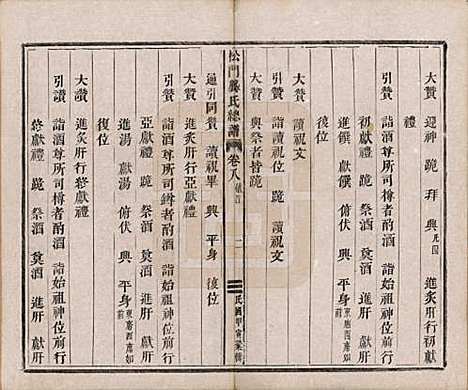 大贊 迎神 跪 拜 興 凡四 進炙肝行初獻
禮
引贊 詣酒尊所司樽者酌酒 詣始祖神位前行
初獻禮 跪 祭酒 奠酒 進肝 獻肝
進饌 獻饌 俯伏 興 平身
復位
大贊 讀祝文
引贊 詣讀祝位 跪 讀祝文
大贊 與祭者皆跪
松門龔氏總譜 卷八 二 民國甲
通引同贊 讀祝畢 興 平身 復位
大贊 進炙肝行亞獻禮
引贊 詣酒尊所司樽者酌酒 詣始祖神位前行
亞獻禮 跪 祭酒 奠酒 進肝 獻肝
進湯 獻湯 俯伏 興 平身 東廡西廡如前
復位
大贊 進炙肝行終獻禮
引贊 詣酒尊所司樽者酌酒 詣始祖神位前行
終獻禮 跪 祭酒 奠酒 進肝 獻肝